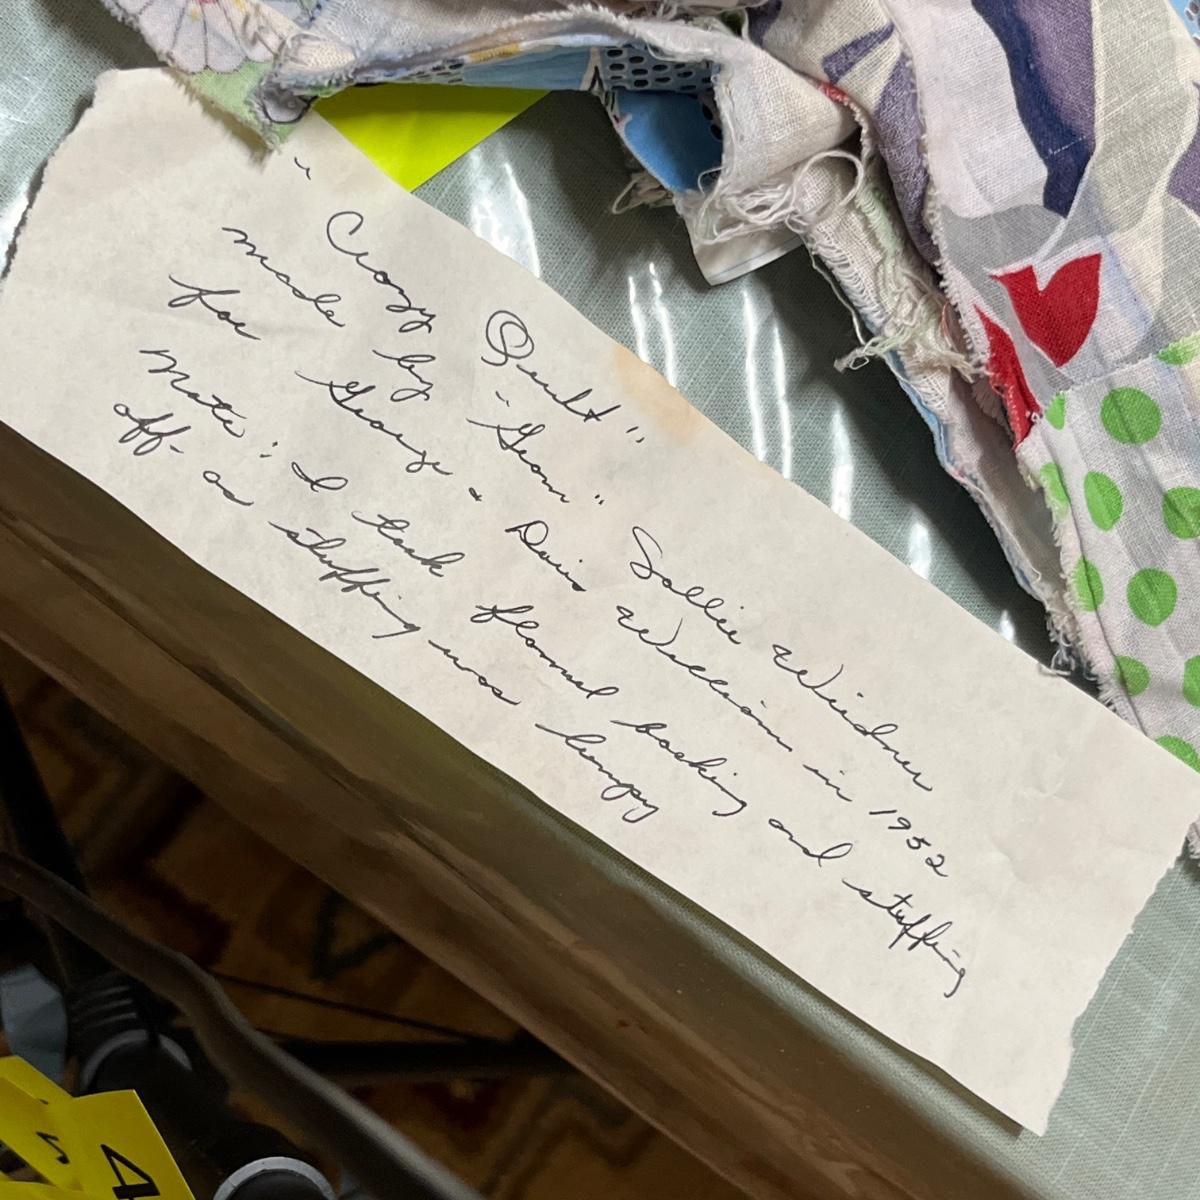 "Crazy Quilt"
made by "Gram" Sallie Weidner
for George & Doris William in 1952
Note: I took flannel backing and stuffing
off - as stuffing was lumpy
4
5